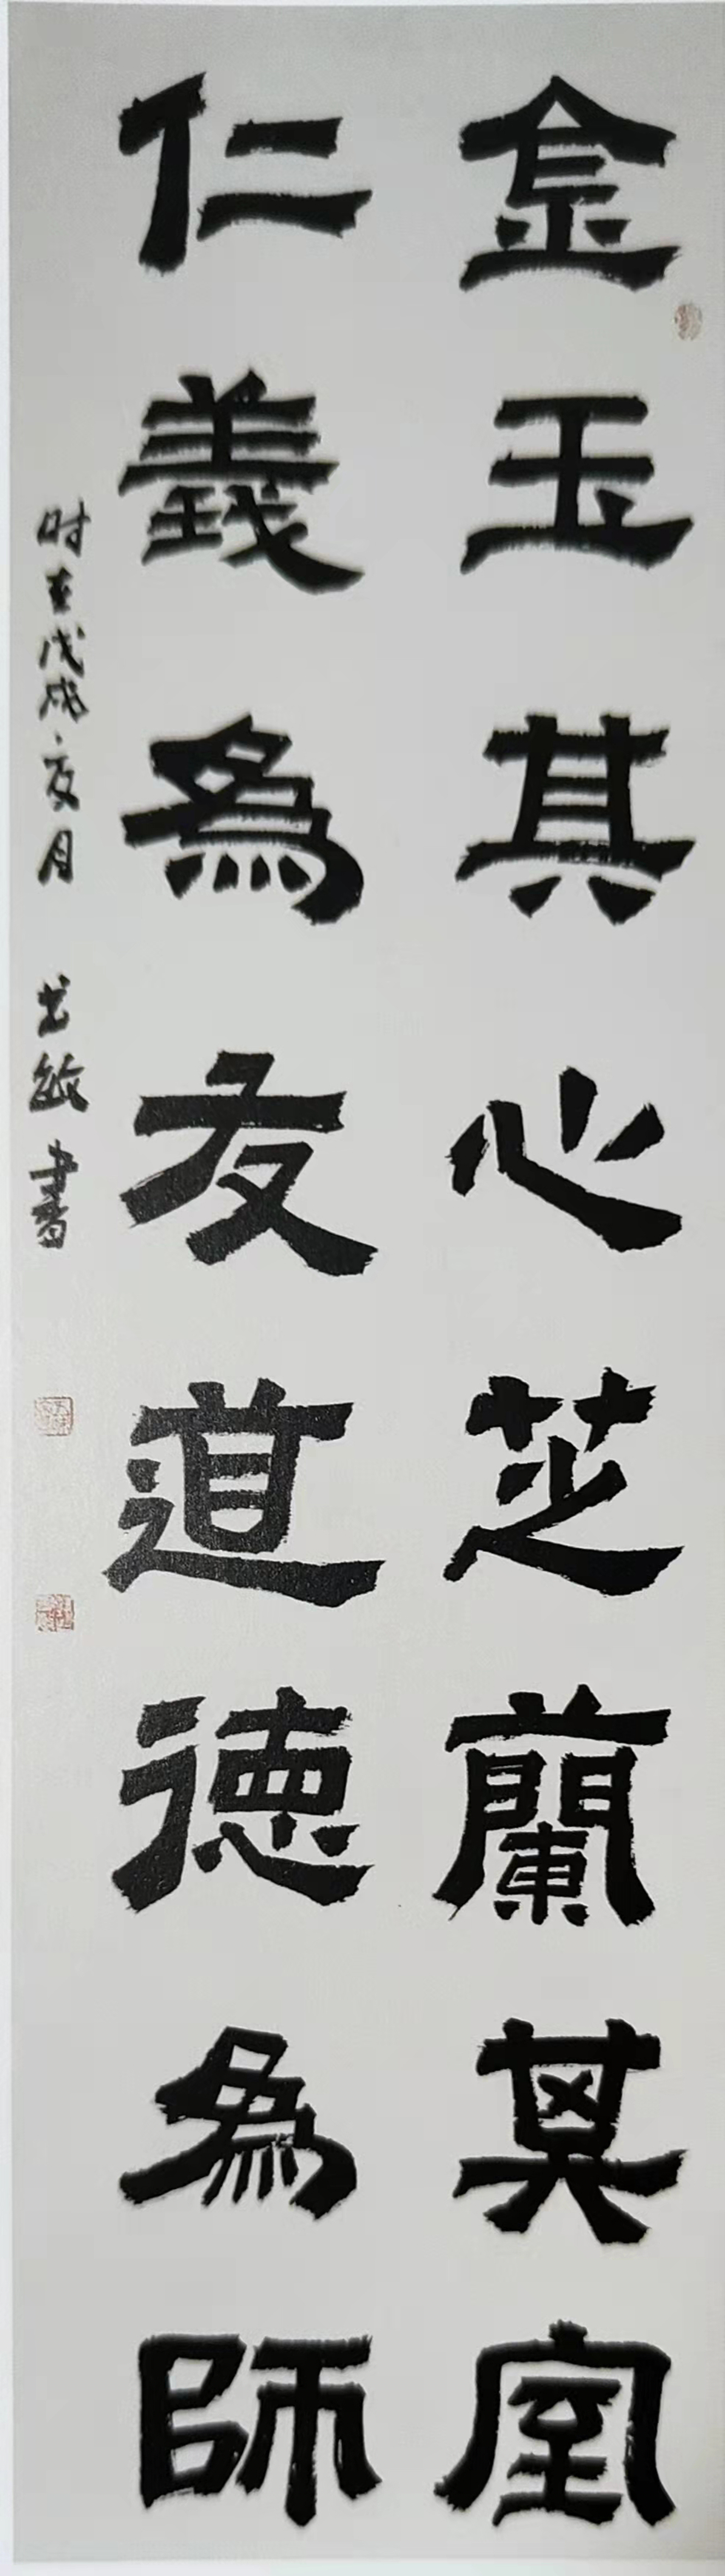 金玉其心芝蘭其室
仁義為友道德為師
时在戊戌夏月 敏書